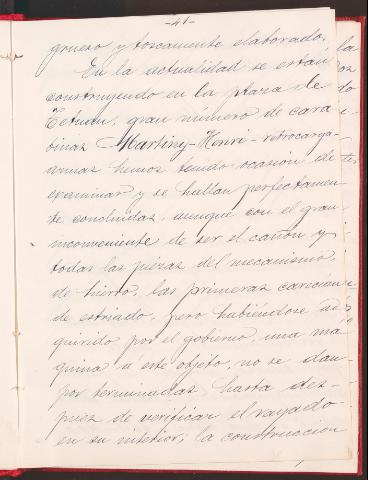 -41-
grueso y toscamente elaborado.
En la actualidad se están
construyendo en la plaza de
Tetuan, gran número de cara
binas Martiny-Henri-retrocarga-
armas hemos tenido ocasión de
examinar y se hallan perfectamen
te concluidas, aunque con el gran
inconveniente de ser el cañon y
todas las piezas del mecanismo,
de hierro, las primeras carecian
de estriado, pero habiéndose ad
quirido por el gobierno, una má
quina á este objeto, no se dan
por terminadas hasta des-
pues de verificar el rayado
en su interior; la construccion